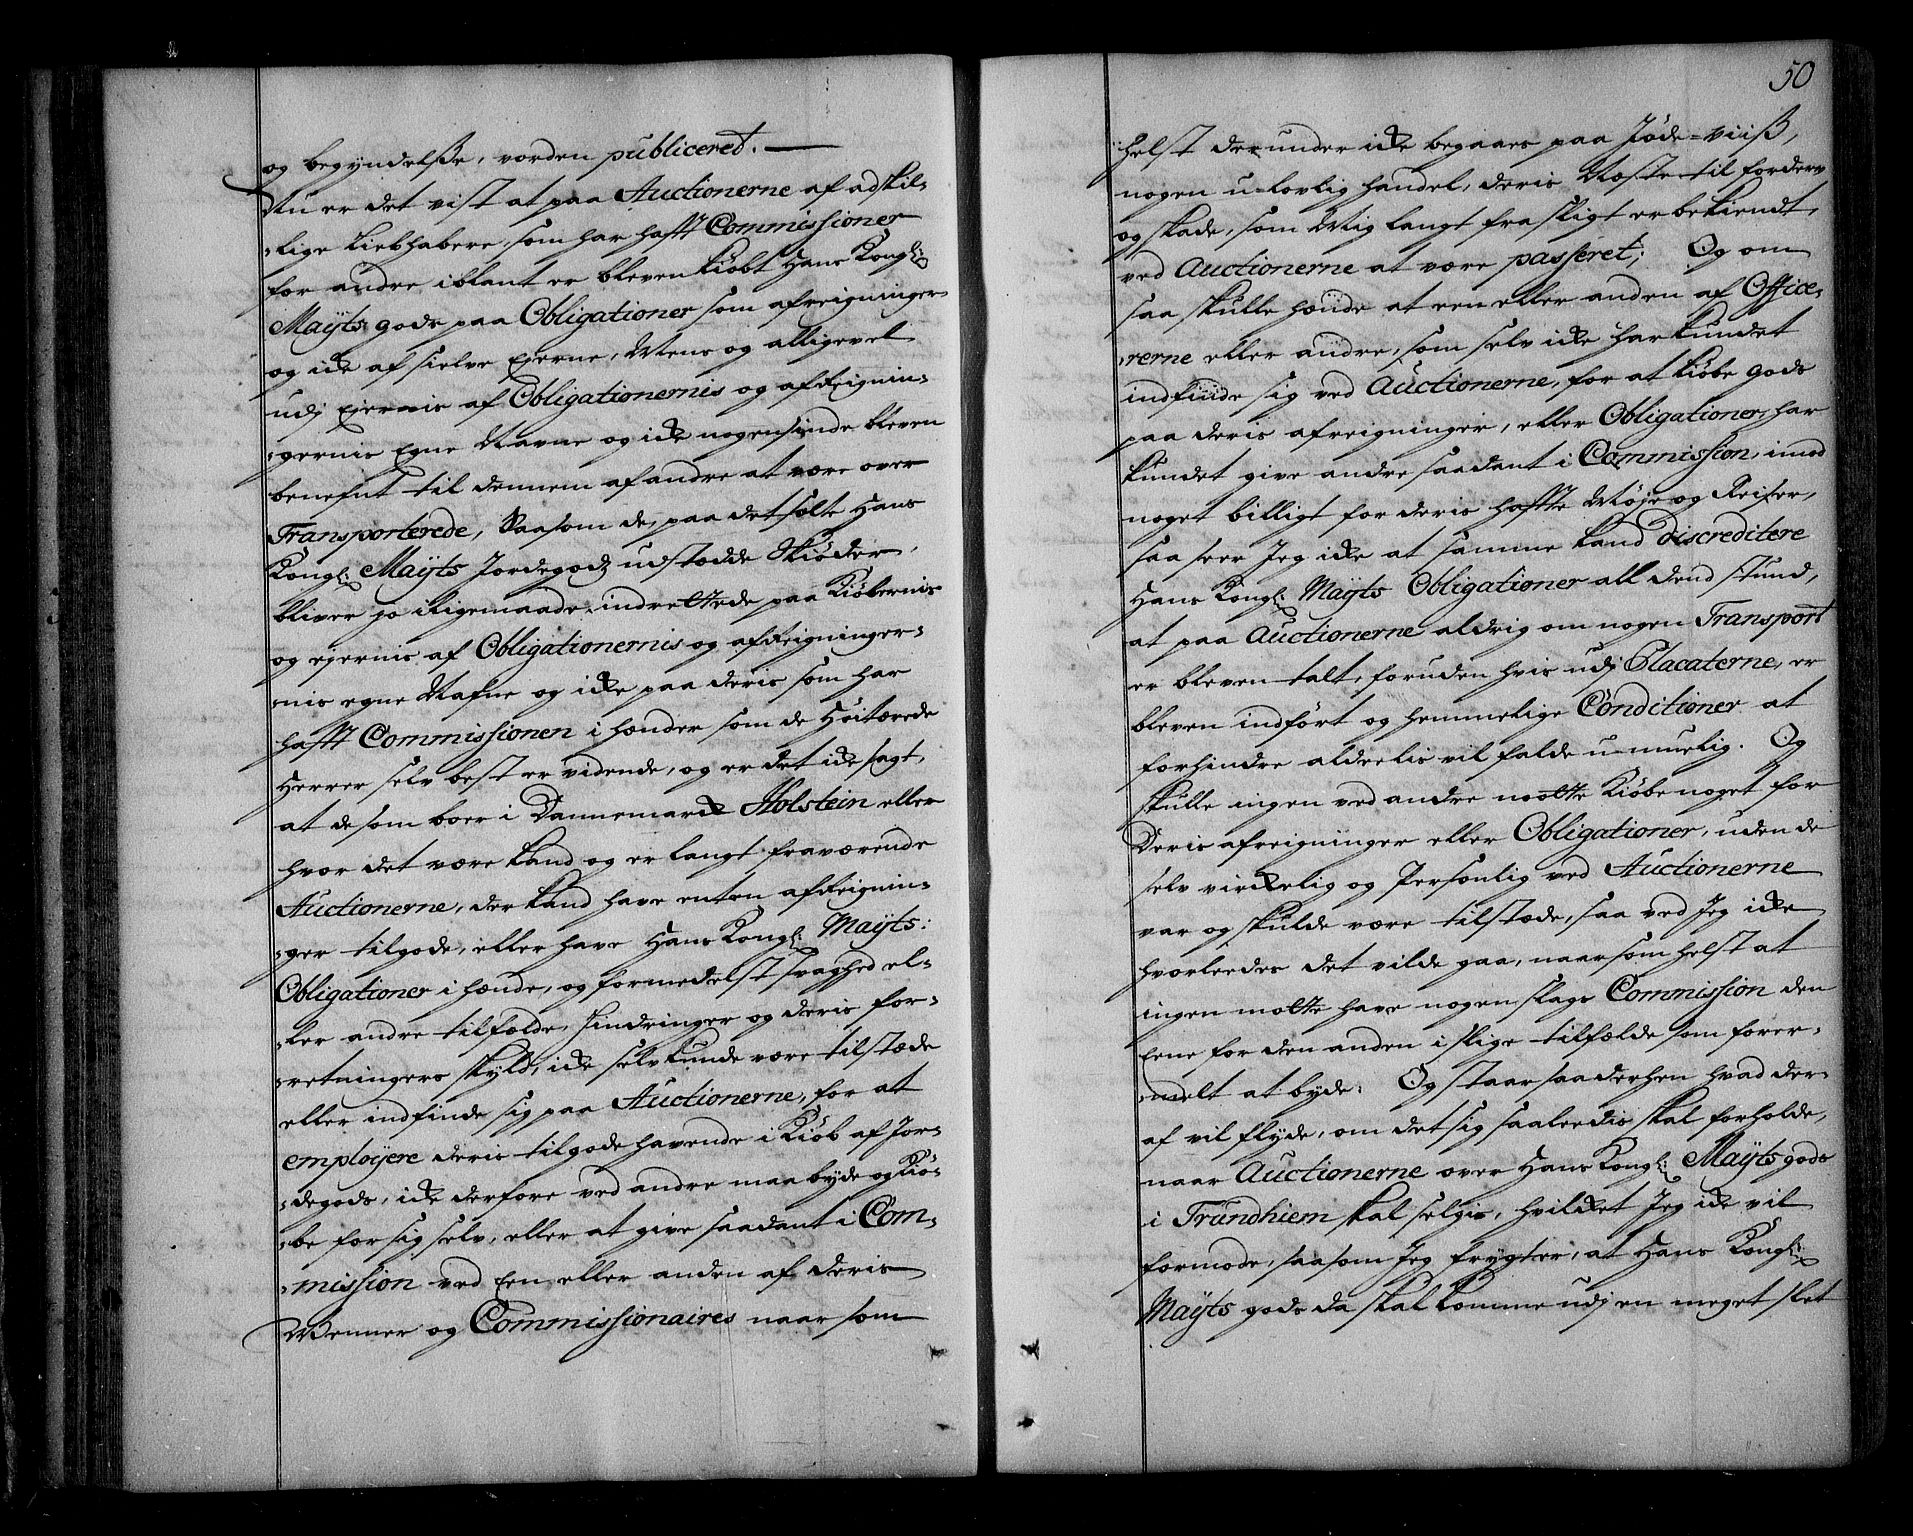 og begyndelße, vorden publiceret.
Nu er det vist at paa Auctionerne af adskil-
-lige Liebhabere, som har hafft Commissioner
for andre iblant er bleven kiöbt Hans Kongl:
Maÿts: gods paa Obligationer som afreigninger
og icke af sielve Ejerne, Mens og alligevel
udj Ejernis af Obligationernis og afReignin-
-gernis Egne Navne og icke nogensinde bleven
benefnt til dennem af andre at være over
Transporterede, Saasom de, paa det solte Hans
Kongl: Maÿts Jordegodz udstædde Skiöder,
bliver jo i lige maade, indrettede paa Kiöbernis
og ejernis af Obligationernis og afReigninger-
-nis egne Nafne og icke paa deris som har
hafft Commissionen i hænder som de Höitærede
Herrer selv best er vidende, og er det icke sagt,
at de som boer i Dannemarck Holstein eller
hvor det være kand og er langt fraværende
Auctionerne, der kand have enten afReignin-
-ger tilgode, eller have Hans Kongl: Maÿts:
Obligationer i hænde, og formedelst svaghed el-
-ler andre tilfælde, hindringer og deris for-
-retningers skyld, icke selv kunde være tilstæde
eller indfinde sig paa Auctionerne, for at
employere deris tilgodehavende i Kiöb af Jor-
-degods, icke derfore ved andre maa byde og Kiö-
-be for sig selv, eller at give saadant i Com-
-mission ved Een eller anden af deris
Venner og Commissionaires naar som
50
helst derunder icke begaaes paa Jöde-viiß,
nogen u-lovlig handel, deris Næste til forderv
og skade, som Mig langt fra sligt er bekiendt,
ved Auctionerne at være passeret; Og om
saa skulle hænde at een eller anden af Office-
-rerne eller andre, som selv icke har kundet
indfinde sig ved Auctionerne, for at kiöbe gods
paa deris afreigninger, eller Obligationer, har
kundet give andre saadant i Commission, imod
noget billigt for deris haffte Möje og Reiser,
saa seer Jeg icke at samme kand discreditere
Hans Kongl: Maÿts Obligationer all dend stund,
at paa Auctionerne aldrig om nogen Transport
er bleven talt, foruden hvis udj Placaterne, er
bleven indfört og hemmelige Conditioner at
forhindre aldeelis vil falde u-muelig. Og
skulle ingen ved andre motte Kiöbe noget for
Deris afreigninger eller Obligationer, uden de
selv virckelig og Personlig ved Auctionerne
var og skulde være tilstæde, saa ved Jeg icke
hvorleedes det vilde gaa, naar som helst at
ingen motte have nogen slags Commission den
Eene for den anden i slige tilfælde som forer-
-melt at byde: Og staar saa derhen hvad der-
af vil flyde, om det sig saaleedis skal forholde,
naar Auctionerne over Hans Kongl: Maÿts gods
i Trundhiem skal selgis, hvilcket Jeg icke vil
formode, saasom Jeg frygter, at Hans Kongl:
Maÿts gods da skal komme udj en meget slet